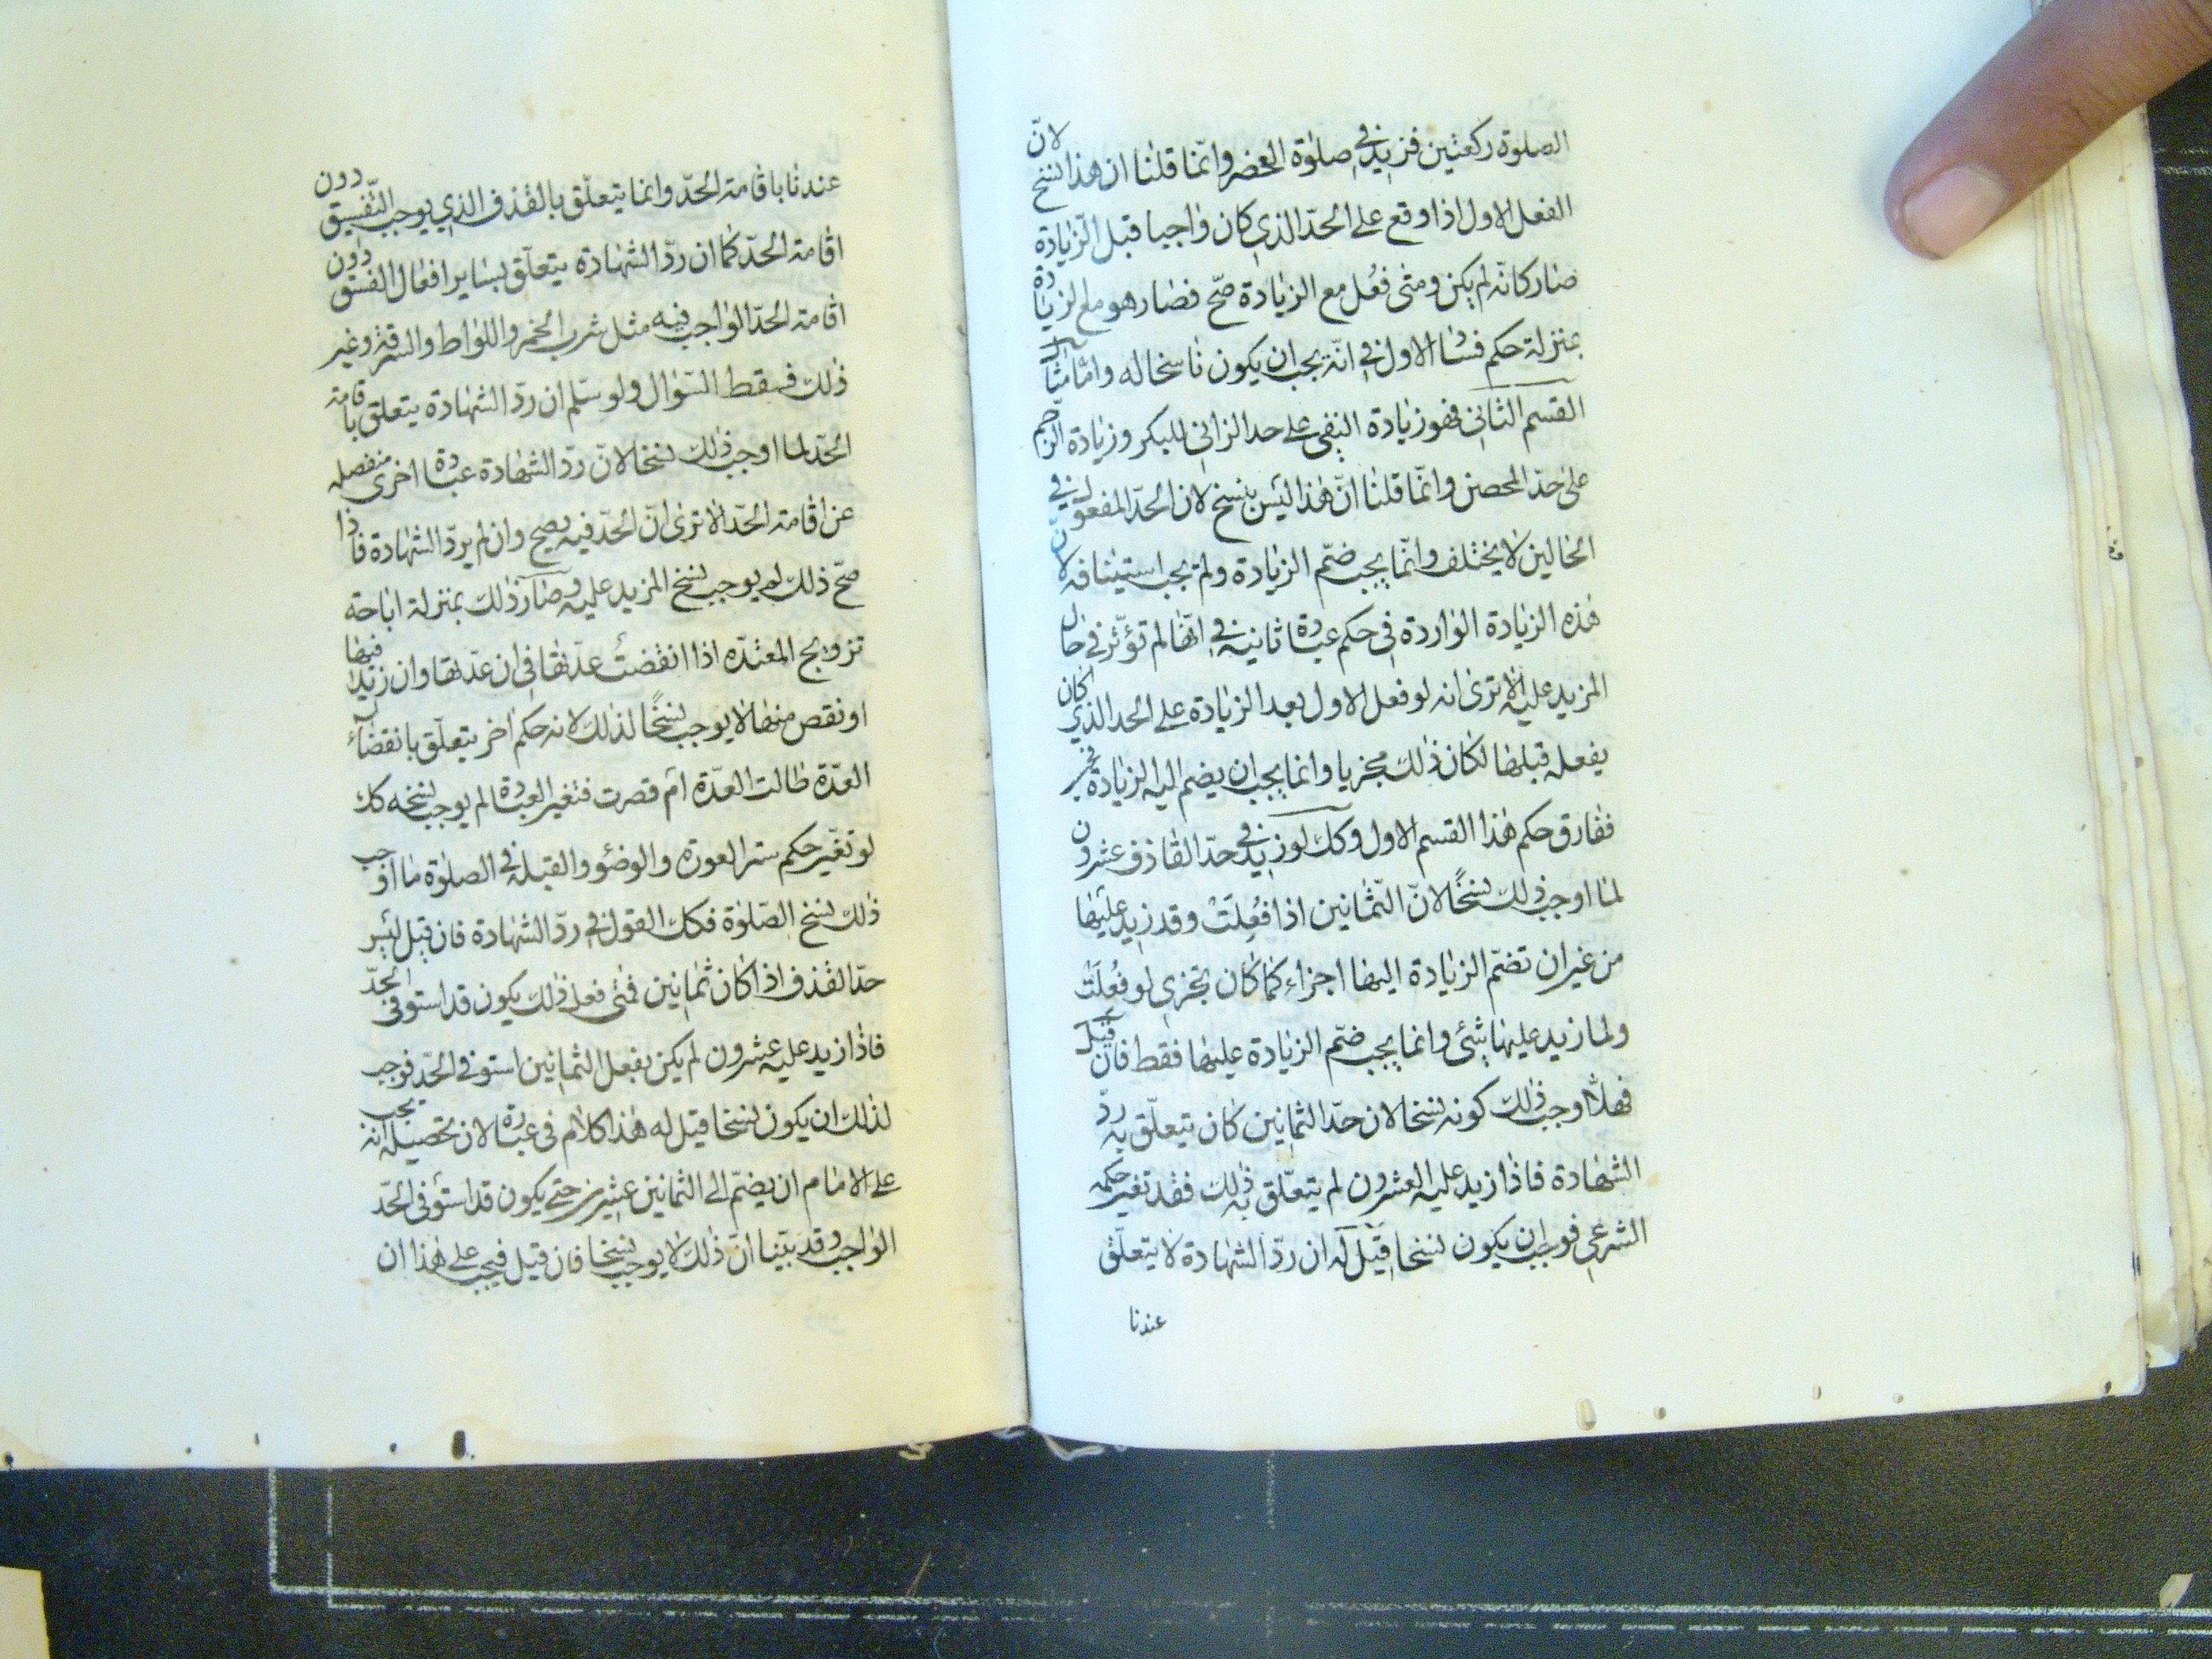 الصلوة ركعتين فزيد في صلوة الحضر وانّما قلنا ان هذا نسخ لانّ
الفعل الاول اذا وقع على الحدّ الذي كان واجبا قبل الزّيادة
صار كانّه لم يكن ومتى فُعل مع الزيادة صّح فصار هو مع الزيادة
بمنزلة حكم فشا الاول في انّه يجب ان يكون ناسخا له وامّا مثال
القسم الثاني فهو زيادة النفى على حد الزاني للبكر وزيادة الرّجم
على حدّ المحصن وانّما قلنا انّ هذا ليس بنسخ لان الحدّ المفعول في
الحالين لا يختلف وانّما يجب ضّم الزيادة ولم يجب استينافه لانّ
هذه الزيادة الواردة في حكم عبادة ثانية في انّها لم تؤثّر في حال
المزيد عليه الا ترى انه لو فعل الاول بعد الزيادة على الحد الذي كان
يفعله قبلها لكان ذلك مجزيا وانما يجب ان يضم اليه الزيادة
ففارق حكم هذا القسم الاول وكك لو زيد في حدّ القاذف عشرون
لما اوجب ذلك نسخًا لانّ الثّمانين اذا فُعِلَتْ وقد زيد عليها
من غير ان تضّم الزيادة اليها اجزاء كما كان تجزى لو فُعلَتْ
ولما زيد عليها شئ وانما يجب ضّم الزيادة عليها فقط فان قيل
فهلّا اوجب ذلك كونه نسخا لان حدّ الثمانين كان يتعلّق به ردّ
الشهادة فاذا زيد عليه العشرون لم يتعّلق به ذلك فقد تغير حكمه
الشرعى فوجب ان يكون نسخا قيل له ان ردّ الشهادة لا يتعلّق
عندنا
عندنا باقامة الحدّ وانما يتعلّق بالقذف الذي يوجب التّفسيق دون
اقامة الحدّ كما ان ردّ الشهادة يتعلّق بساير افعال الفسق دون
اقامة الحدّ الواجب فيه مثل شرب الخمر واللواط والسرقة وغير
ذلك فسقط السّوال ولو سلّم ان ردّ الشهادة يتعلق باقامة
الحّد لما اوجب ذلك نسخا لانّ ردّ الشهادة عبادة اخرى منفصله
عن اقامة الحدّ الا ترى انّ الحدّ فيه يصح وان لم يردّ الشهادة فاذا
صّح ذلك لم يوجب نسخ المزيد عليه وصار ذلك بمنزلة اباحة
تزويج المعتدّه اذا انقضتْ عدّتها في ان عدّتها وان زيد فيها
او نقص منها لا يوجب نسخًا لذلك لانه حكم اخر يتعلّق بانقضاء
العدّة طالت العدّة ام قصرت فتغير العبادة لم يوجب نسخه كك
لو تغيّر حكم ستر العورة والوضوء والقبلة في الصلوة ما اوجب
ذلك نسخ الصّلوة فكك القول في ردّ الشهادة فان قيل ليس
حدّ القذف اذا كان ثمانين فمتى فعل ذلك يكون قد استوفى الحدّ
فاذا زيد عليه عشرون لم يكن بفعل الثمانين استوفى الحدّ فوجب
لذلك ان يكون نسخا قيل له هذا كلام في عبارة لان تحصيله انّه يجب
على الامام ان يضّم الى الثمانين عشرين حتى يكون قد استوفى الحّد
الواجب وقد بيّنا انّ ذلك لا يوجب نسخا فان قيل فيجب على هذا ان